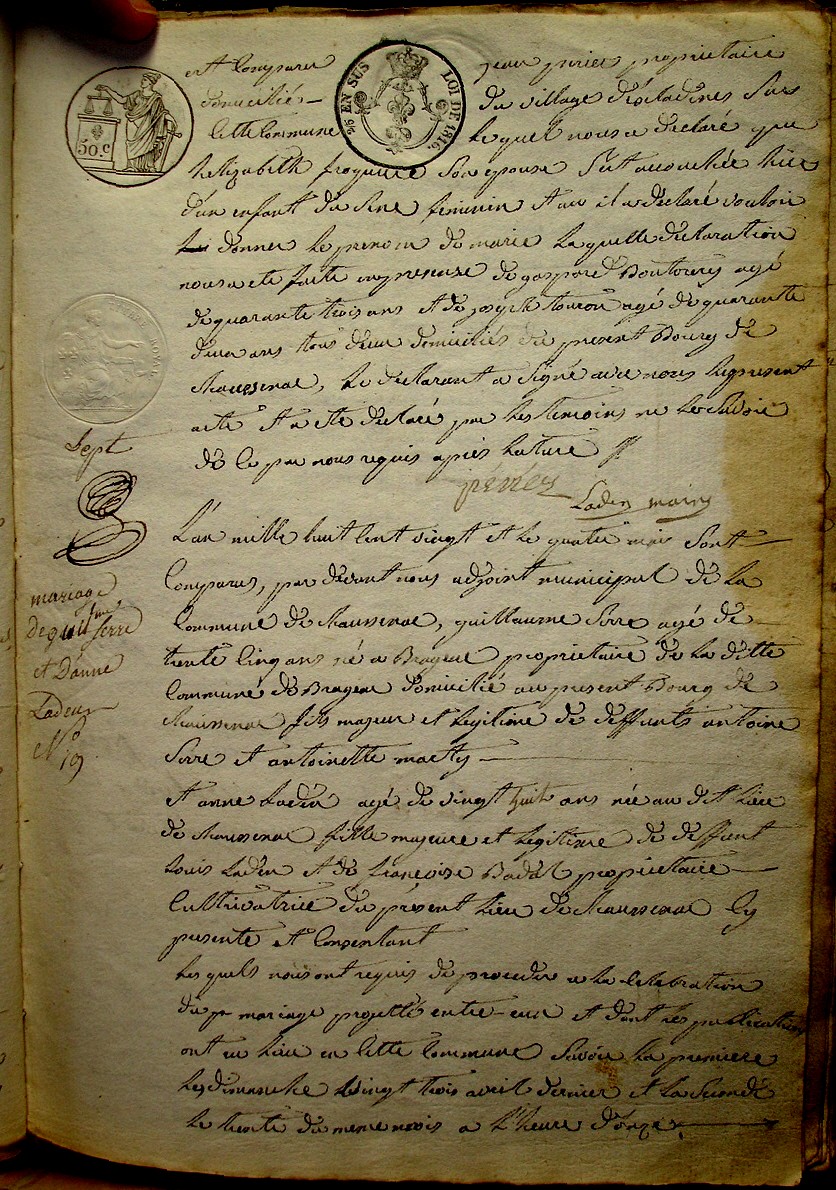 50.c
25 EN SUS
LOI DE 1816.
est Comparu jean perier proprietaire
domicilié du village déscladines Sur
Cette Commune Lequel nous a déclaré que
helizabeth Son epouse Est accouchée hier
d'un enfant du Sexe feminin Et au il a déclaré vouloir
donner Le prenom de marie Laquelle déclaration
nous a eté faite en presence de gaspard agé
de quarante trois ans et de joseph touron agé de quarante
deux ans tous deux domiciliés du present Bourg de
Chaussenac, Le declarant a Signé avec nous Le present
acte Et a eté declaré par Les temoins ne Le Savoir
de Ce par nous requis après Lecture
périer
Laden maire
Sept
mariage
de guilme Serre
et D'anne
Laden
No 19
L'an mille huit Cent vingt et Le quatre mai Sont
Comparus, par devant nous adjoint municipal de La
Commune de Chaussenac, guillaume Serre agé de
trente Cinq ans né a Brageac proprietaire de La ditte
Commune de Brageac domicilié au present Bourg de
Chaussenac fils majeur et Legitime de deffunts antoine
Serre et antoinette marty
Et anne Laden agé de vingt huit ans née au dit Lieu
de Chaussenac fille majeure et Legitime de deffunt
Louis Laden et de francoise Badal proprietaire
Cultivatrice du présent Lieu de Chaussenac Cy
presente et Consentant
Les quels nous ont requis de proceder a La Celebration
du pr mariage projetté entre eux et dont Les publications
ont eu Lieu en Cette Commune Savoir La premiere
Le dimanche vingt trois avril dernier et La Seconde
Le trente du meme mois a L'heure d'onze